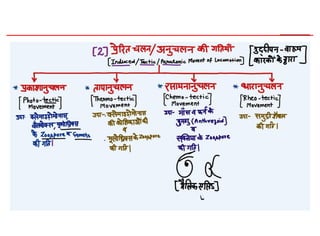 [2] प्रेरित चलन/अनुचलन की गतियाँ
[Induced/Tactic/Paratonic Movement of Locomotion]
[उद्दीपन-बाह्य
कारकों के द्वारा]
* प्रकाशानुचलन
[Photo-tactic]
Movement
उदा-
की गति।
* तापानुचलन
[Thermo-tactic]
Movement
उदा-
की कोशिकाओं की
व
के Zoospore
की गति।
* रसायनानुचलन
[Chemo-tactic]
Movement
उदा- मॉस व फर्न के
पुमणु (Antherozoid)
व
के Zoospore
की गति।
* धारानुचलन
[Rheo-tactic]
Movement
उदा- समुद्री शैवाल
की गति।